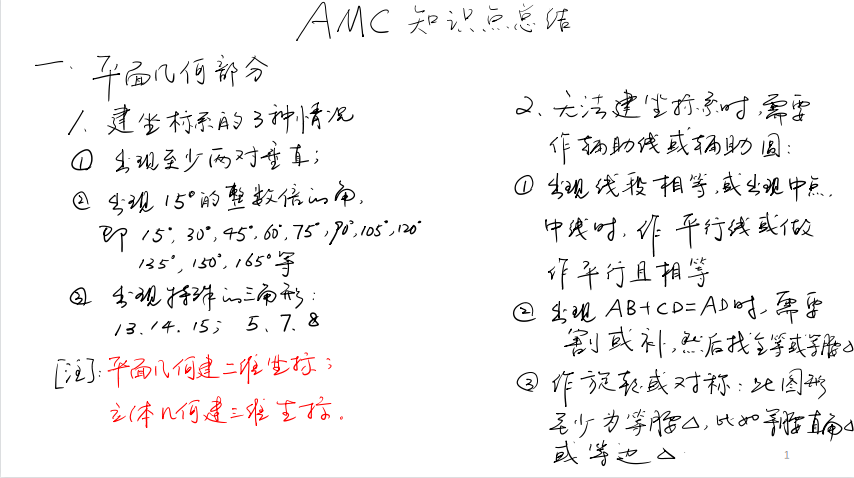 AMC 知识点总结
一. 平面几何部分
1. 建坐标系的3种情况
① 出现至少两对垂直;
② 出现15°的整数倍的角,
即 15°, 30°, 45°, 60°, 75°, 90°, 105°, 120°
135°, 150°, 165°等
③ 出现特殊的三角形:
13. 14. 15; 5、7、8
[注]: 平面几何建二维坐标;
立体几何建三维坐标.
2. 无法建坐标系时, 需要
作辅助线或辅助圆:
① 出现线段相等, 或出现中点,
中线时, 作 平行线或做
作平行且相等
② 出现 AB+CD=AD时, 需要
割或补, 然后找全等或等腰△
③ 作旋转或对称: 此图形
至少为等腰△, 比如等腰直角△
或 等边 △
1